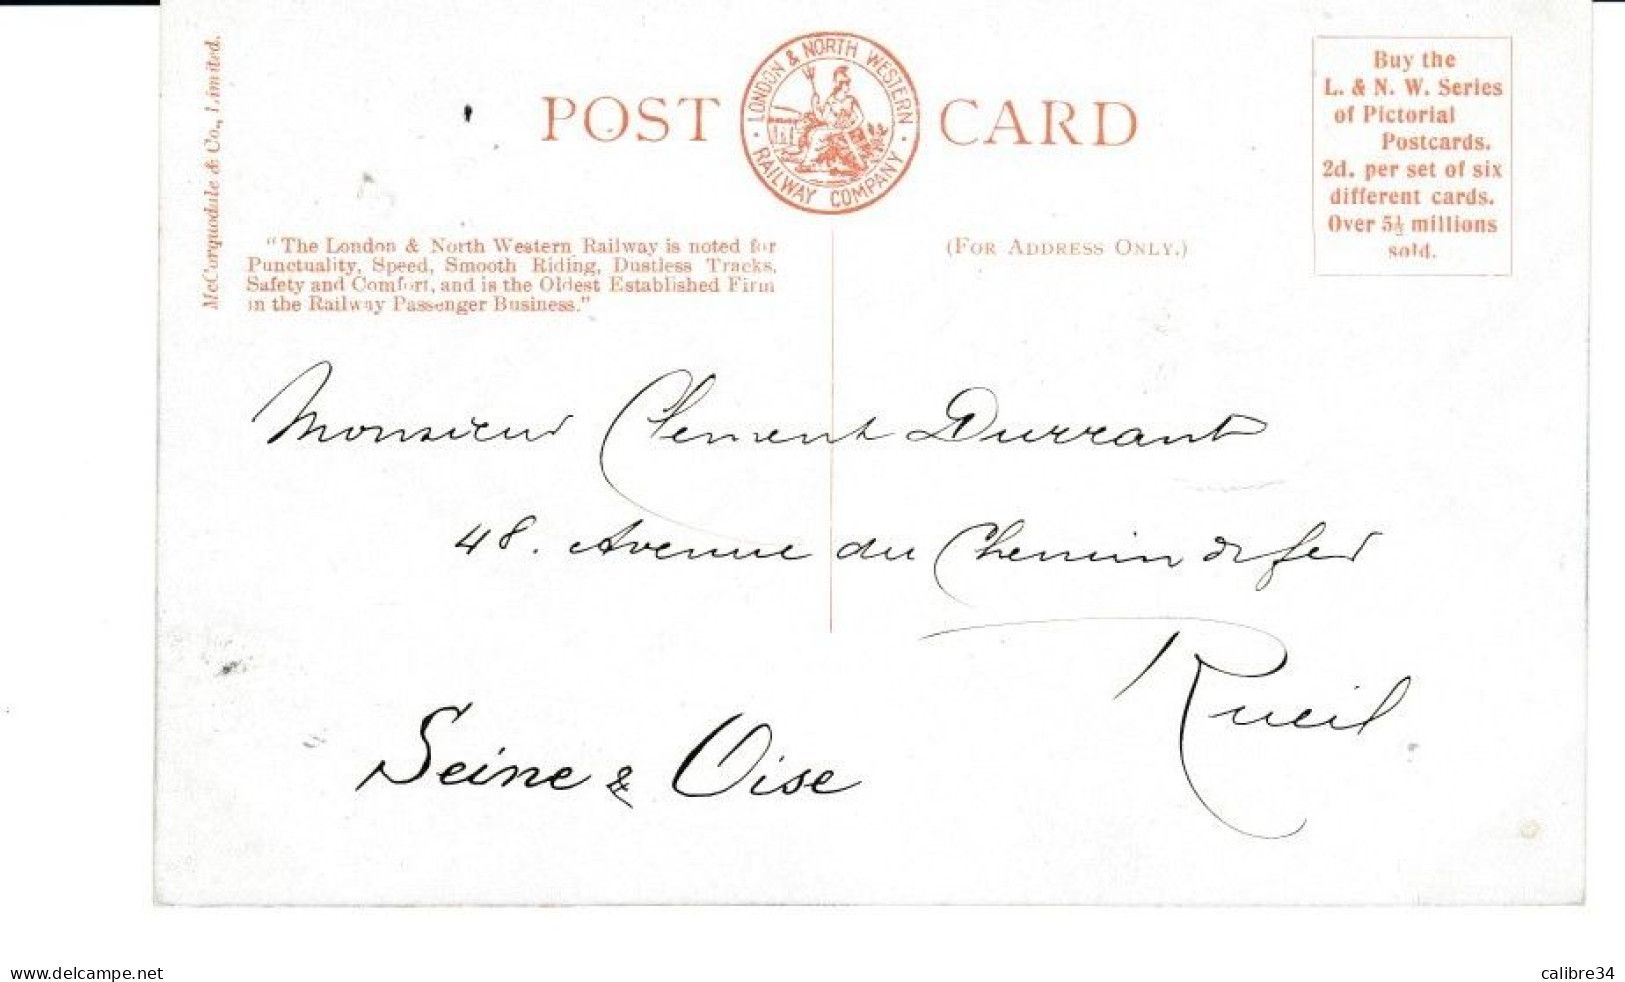 McCorquodale & Co., Limited.
POST CARD
LONDON & NORTH WESTERN
RAILWAY COMPANY
Buy the
L. & N. W. Series
of Pictorial
Postcards.
2d. per set of six
different cards.
Over 5½ millions
sold.
"The London & North Western Railway is noted for
Punctuality, Speed, Smooth Riding, Dustless Tracks,
Safety and Comfort, and is the Oldest Established Firm
in the Railway Passenger Business."
(FOR ADDRESS ONLY.)
Monsieur Clement Durrant
48. Avenue du Chemin de fer
Rueil
Seine & Oise
www.delcampe.net
calibre34